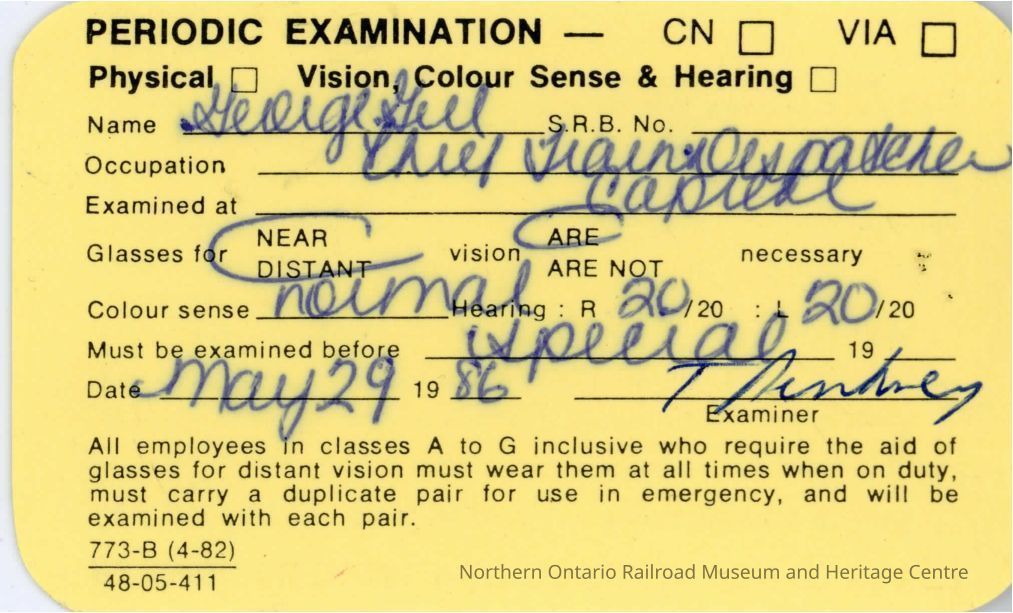 PERIODIC EXAMINATION — CN □ VIA □
Physical □ Vision, Colour Sense & Hearing □
Name George Gill S.R.B. No.
Occupation Chief Train Dispatcher
Examined at Capreol
Glasses for NEAR vision ARE necessary
DISTANT ARE NOT
Colour sense normal Hearing : R 20/20 : L 20/20
Must be examined before Special 19
Date May 29 19 86
Examiner
All employees in classes A to G inclusive who require the aid of
glasses for distant vision must wear them at all times when on duty,
must carry a duplicate pair for use in emergency, and will be
examined with each pair.
773-B (4-82)
48-05-411
Northern Ontario Railroad Museum and Heritage Centre